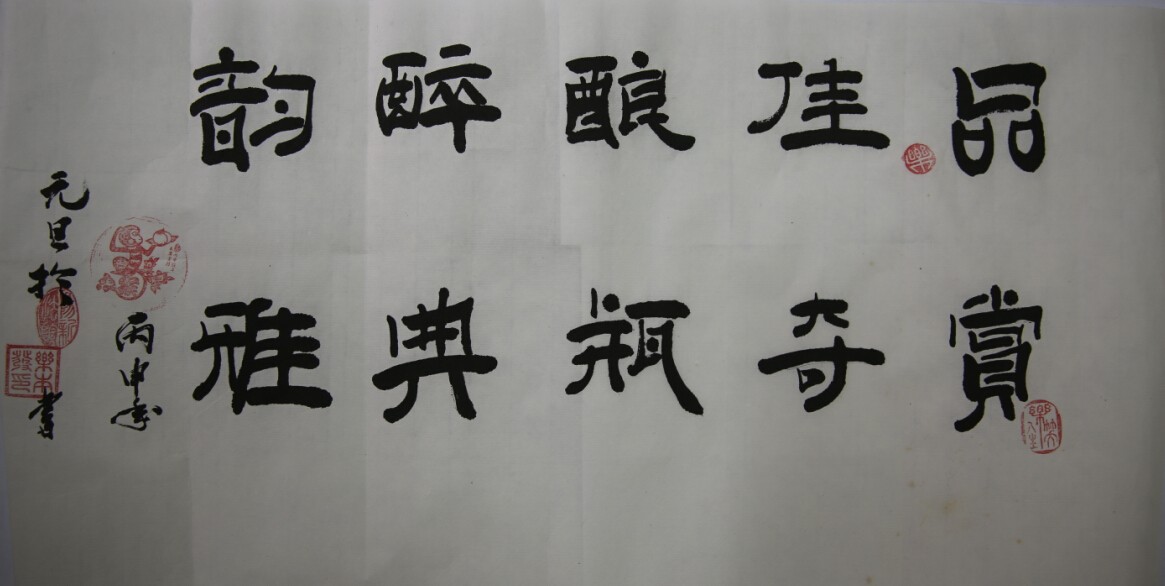 品佳酿醉韵
賞奇瓶典雅
丙申年
元旦於
書